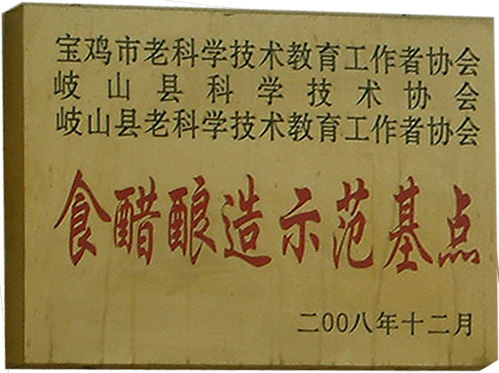 宝鸡市老科学技术教育工作者协会
岐山县科学技术协会
岐山县老科学技术教育工作者协会
食醋酿造示范基点
二00八年十二月